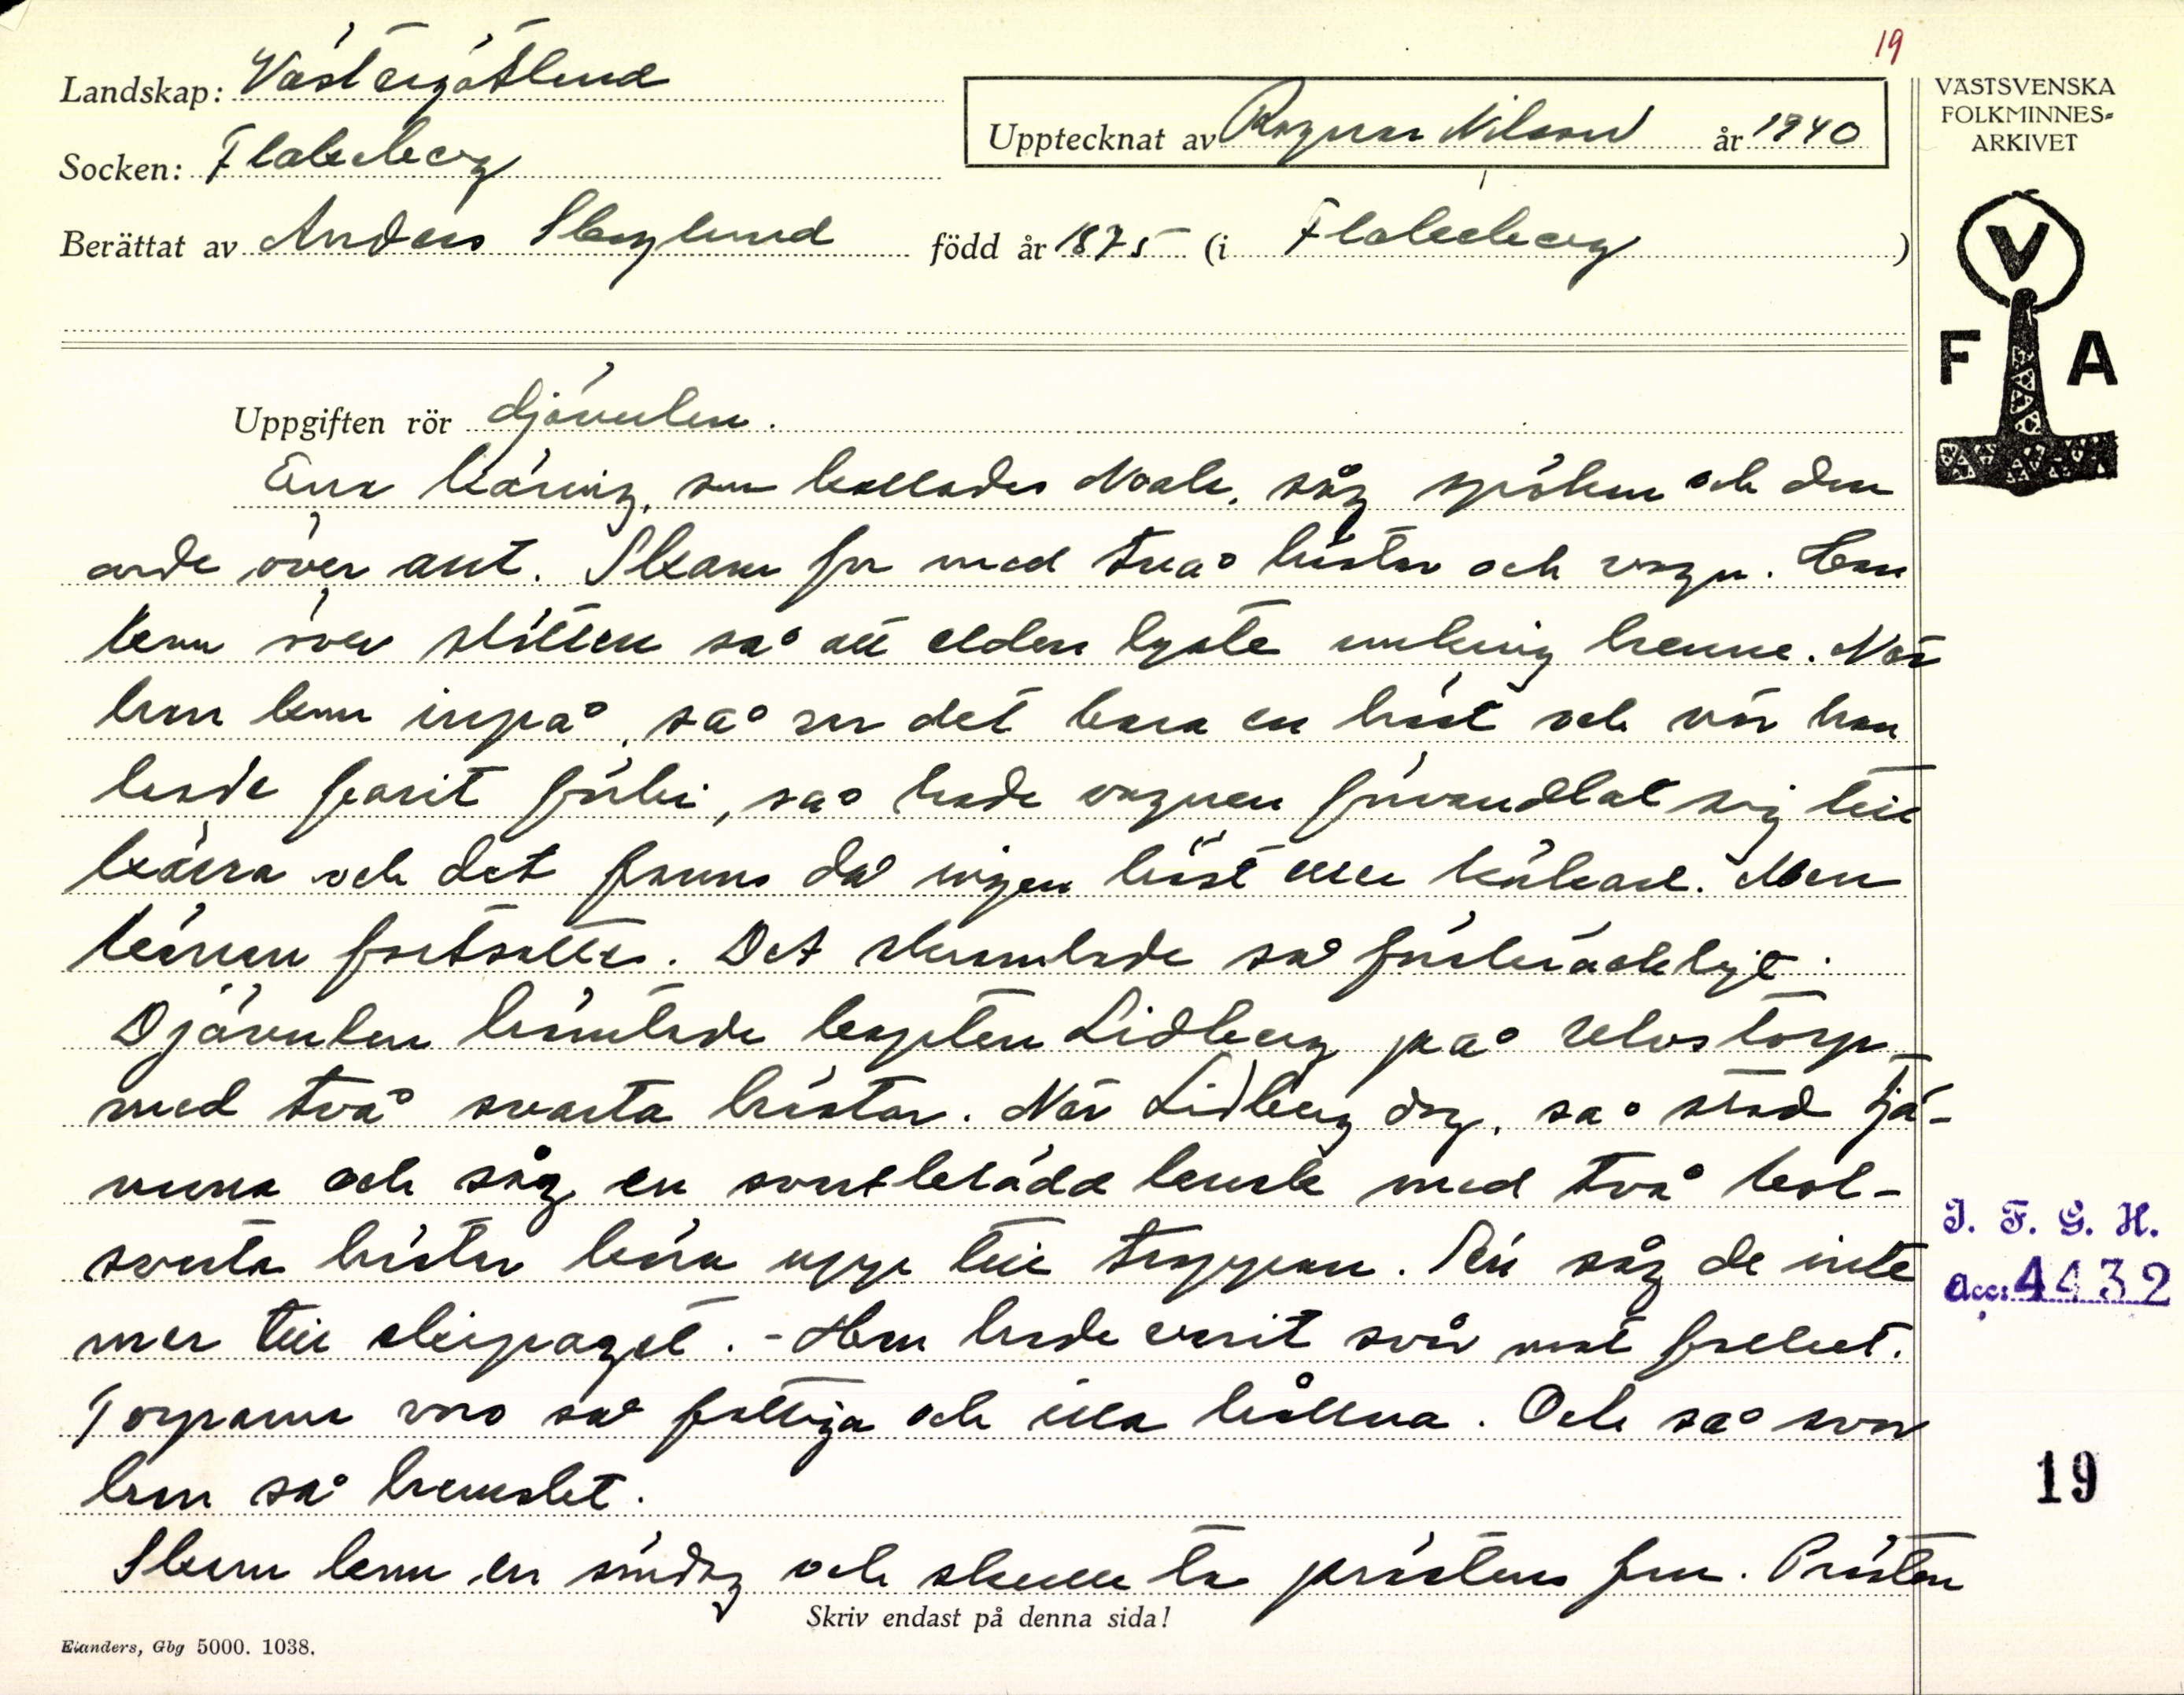 19
Landskap: Västergötland
Socken: Flakeberg
Upptecknat av Ragnar Nilsson år 1940
Berättat av Anders Skoglund född år 1875 (i Flakeberg)
VÄSTSVENSKA
FOLKMINNES-
ARKIVET
V
F A
Uppgiften rör djävulen.
En käring, som kallades Noak, såg spöken och den
onde över allt. Skam for med två hästar och vagn. Han
kom över slätten så att elden lyste omkring henne. När
han kom inpå, så var det bara en häst och när han
hade farit förbi, så hade vagnen förvandlat sig till
kärra och det fanns då ingen häst eller kuskar. Men
kärran fortsatte. Det skramlade så förskräckligt.
Djävulen hämtade kapten Lidberg på torp
med två svarta hästar. När Lidberg dog, så stod tjä-
narna och såg en svartklädd kusk med två kol-
svarta hästar köra upp till trappan. Sen såg de inte
mer till ekipaget. - Han hade varit svår mot folket.
Torparna voro så fattiga och illa hållna. Och så svor
han så hemskt.
Skam kom en söndag och skulle ta prästens fru. Prästen
Skriv endast på denna sida!
Elanders, Gbg 5000. 1038.
I. F. G. H.
Acc: 4432
19